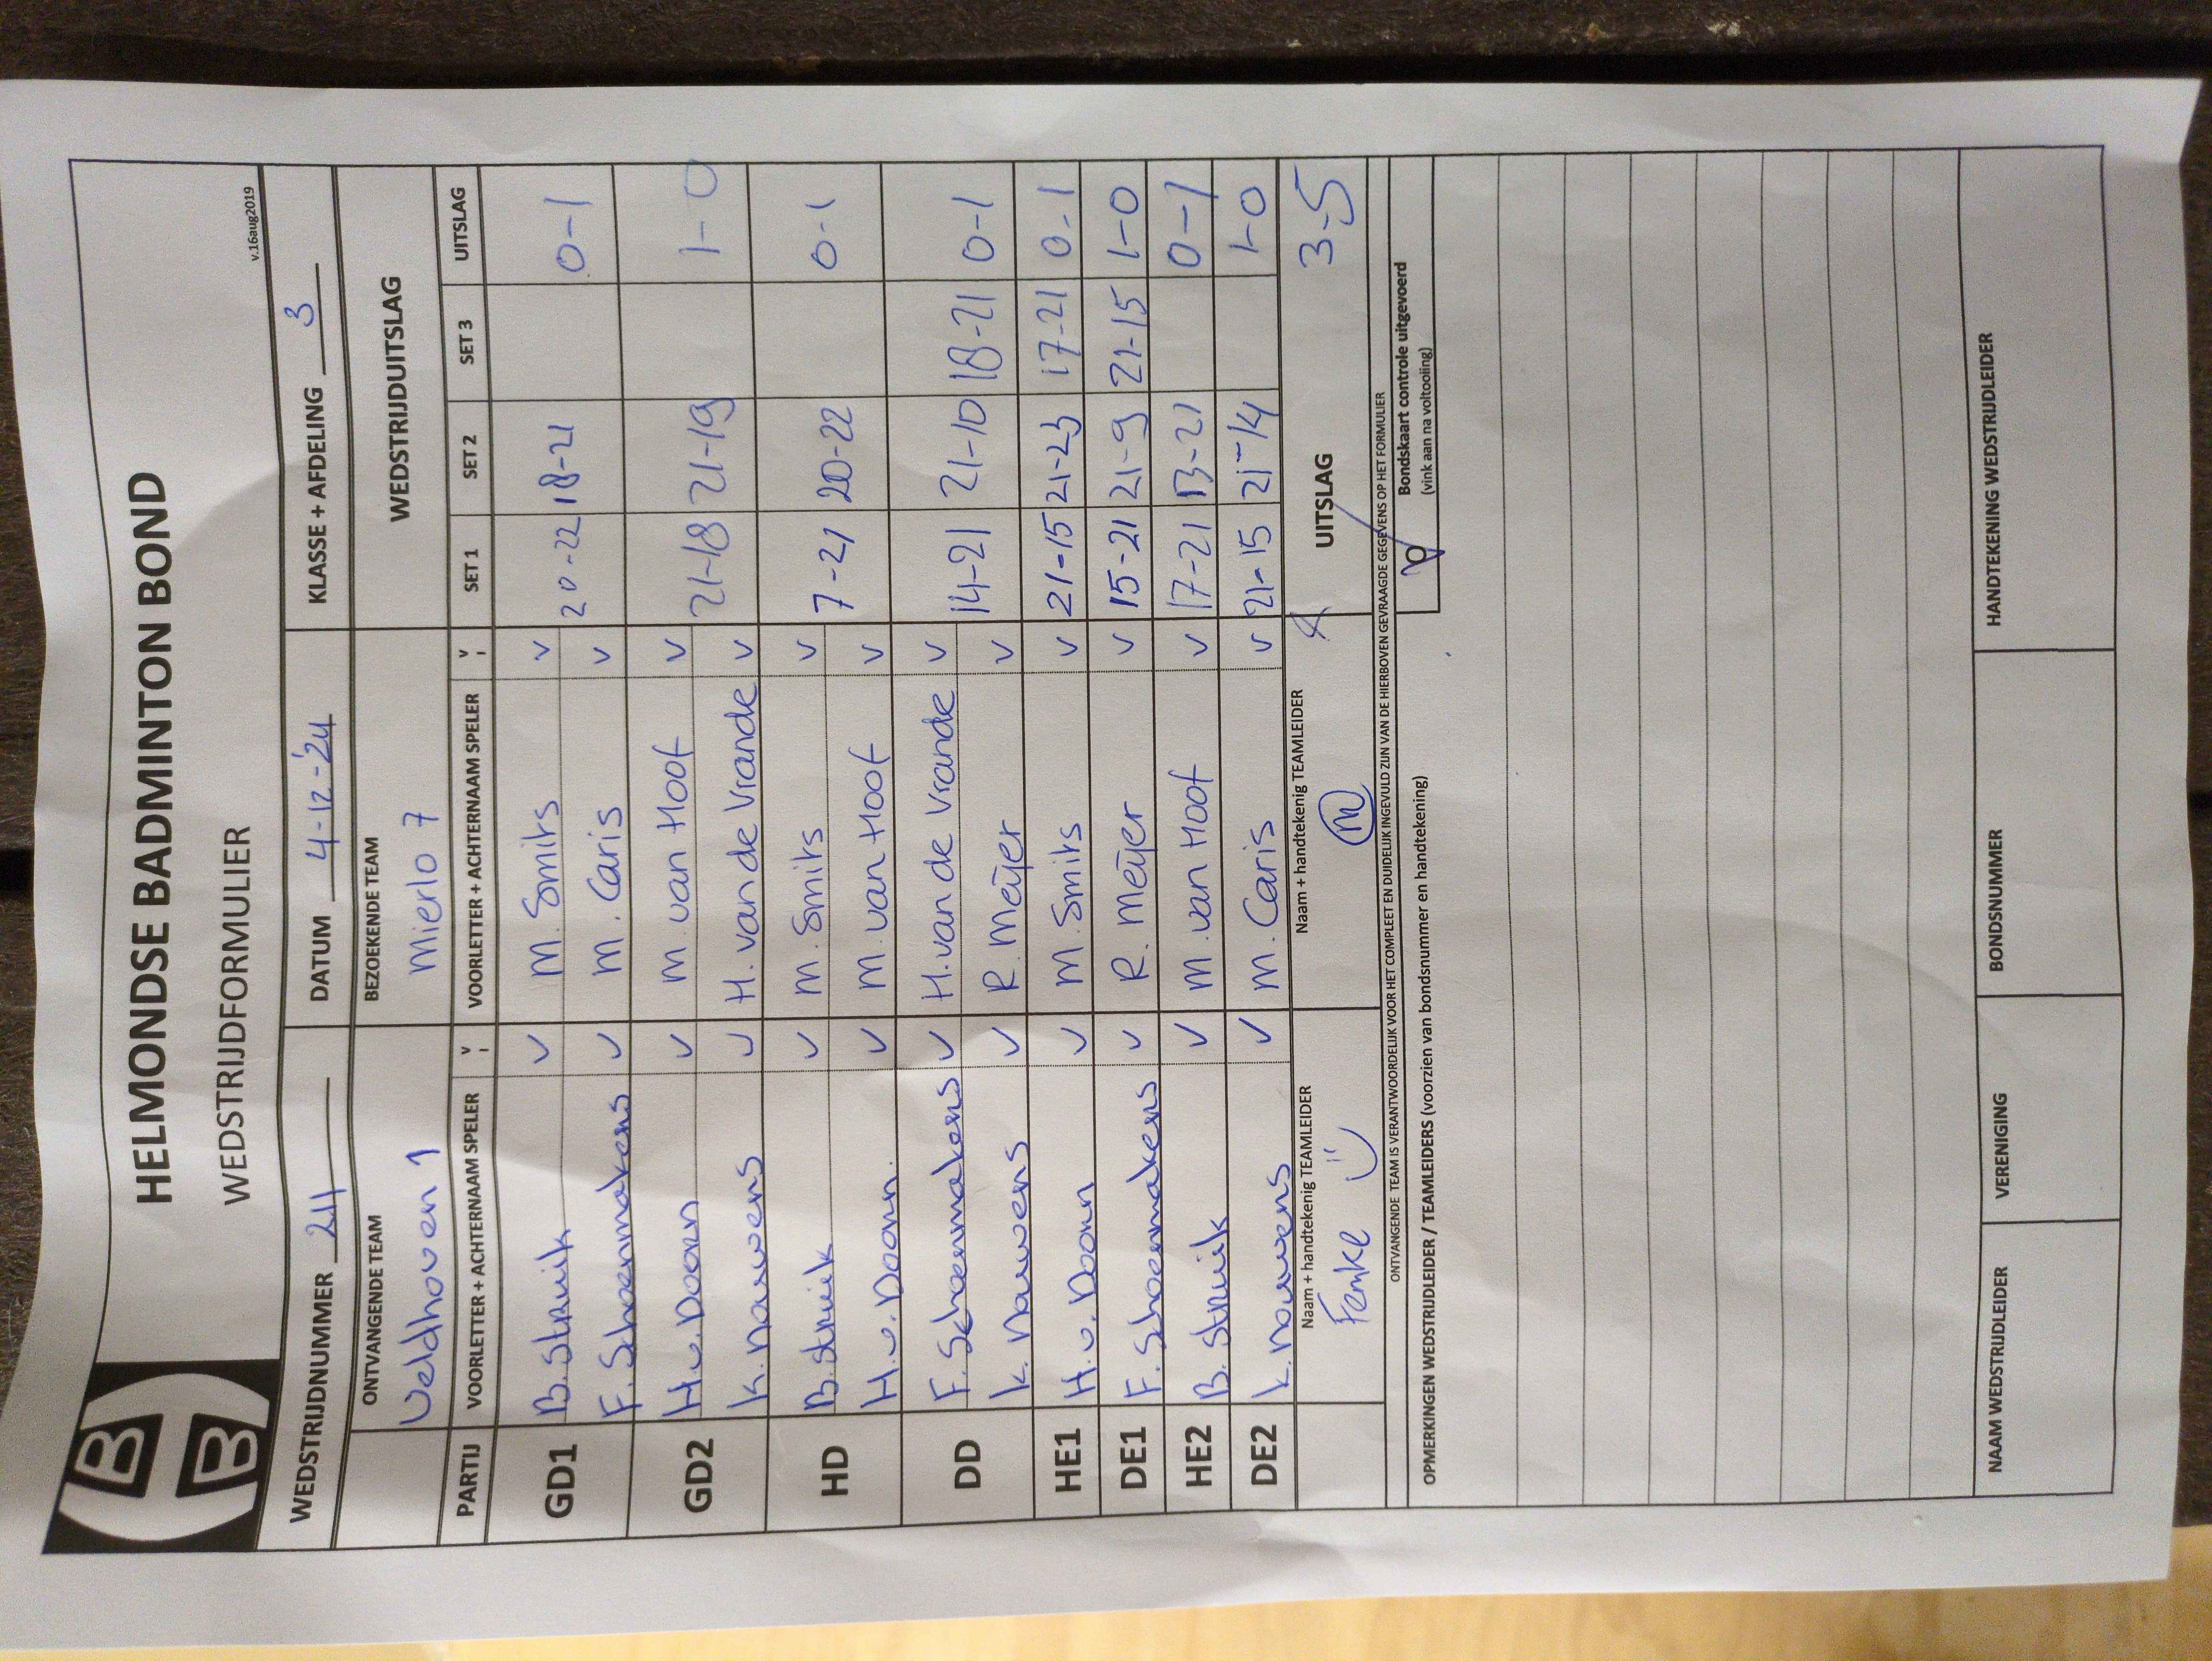 HELMONDSE BADMINTON BOND
WEDSTRIJDFORMULIER
v.16aug2019
HBB
WEDSTRIJDNUMMER 211 DATUM 4-12-'24 KLASSE + AFDELING 3
ONTVANGENDE TEAM BEZOEKENDE TEAM WEDSTRIJDUITSLAG
Veldhoven 1 Mierlo 7
PARTIJ VOORLETTER + ACHTERNAAM SPELER V VOORLETTER + ACHTERNAAM SPELER V SET 1 SET 2 SET 3 UITSLAG
GD1 B. Struik v M. Smits v 20-22 18-21 0-1
F. Schoenmakers v M. Caris v
GD2 H.v. Doorn v M van Hoof v 21-18 21-19 1-0
K. Nouwens v H. van de Vrande v
HD B. Struik v M. Smits v 7-21 20-22 0-1
H.v. Doorn. v M. van Hoof v
DD F. Schoenmakers v H. van de Vrande v 14-21 21-10 18-21 0-1
K. Nouwens v R. Meijer v
HE1 H.v. Doorn v M. Smits v 21-15 21-23 17-21 0-1
DE1 F. Schoenmakers v R. Meijer v 15-21 21-9 21-15 1-0
HE2 B. Struik v M. van Hoof v 17-21 13-21 0-1
DE2 K. Nouwens v M. Caris v 21-15 21-14 1-0
Naam + handtekenig TEAMLEIDER Naam + handtekenig TEAMLEIDER UITSLAG 3-5
Femke
ONTVANGENDE TEAM IS VERANTWOORDELIJK VOOR HET COMPLEET EN DUIDELIJK INGEVULD ZIJN VAN DE HIERBOVEN GEVRAAGDE GEGEVENS OP HET FORMULIER
Bondskaart controle uitgevoerd
(vink aan na voltooiing)
OPMERKINGEN WEDSTRIJDLEIDER / TEAMLEIDERS (voorzien van bondsnummer en handtekening)
NAAM WEDSTRIJDLEIDER VERENIGING BONDSNUMMER HANDTEKENING WEDSTRIJDLEIDER